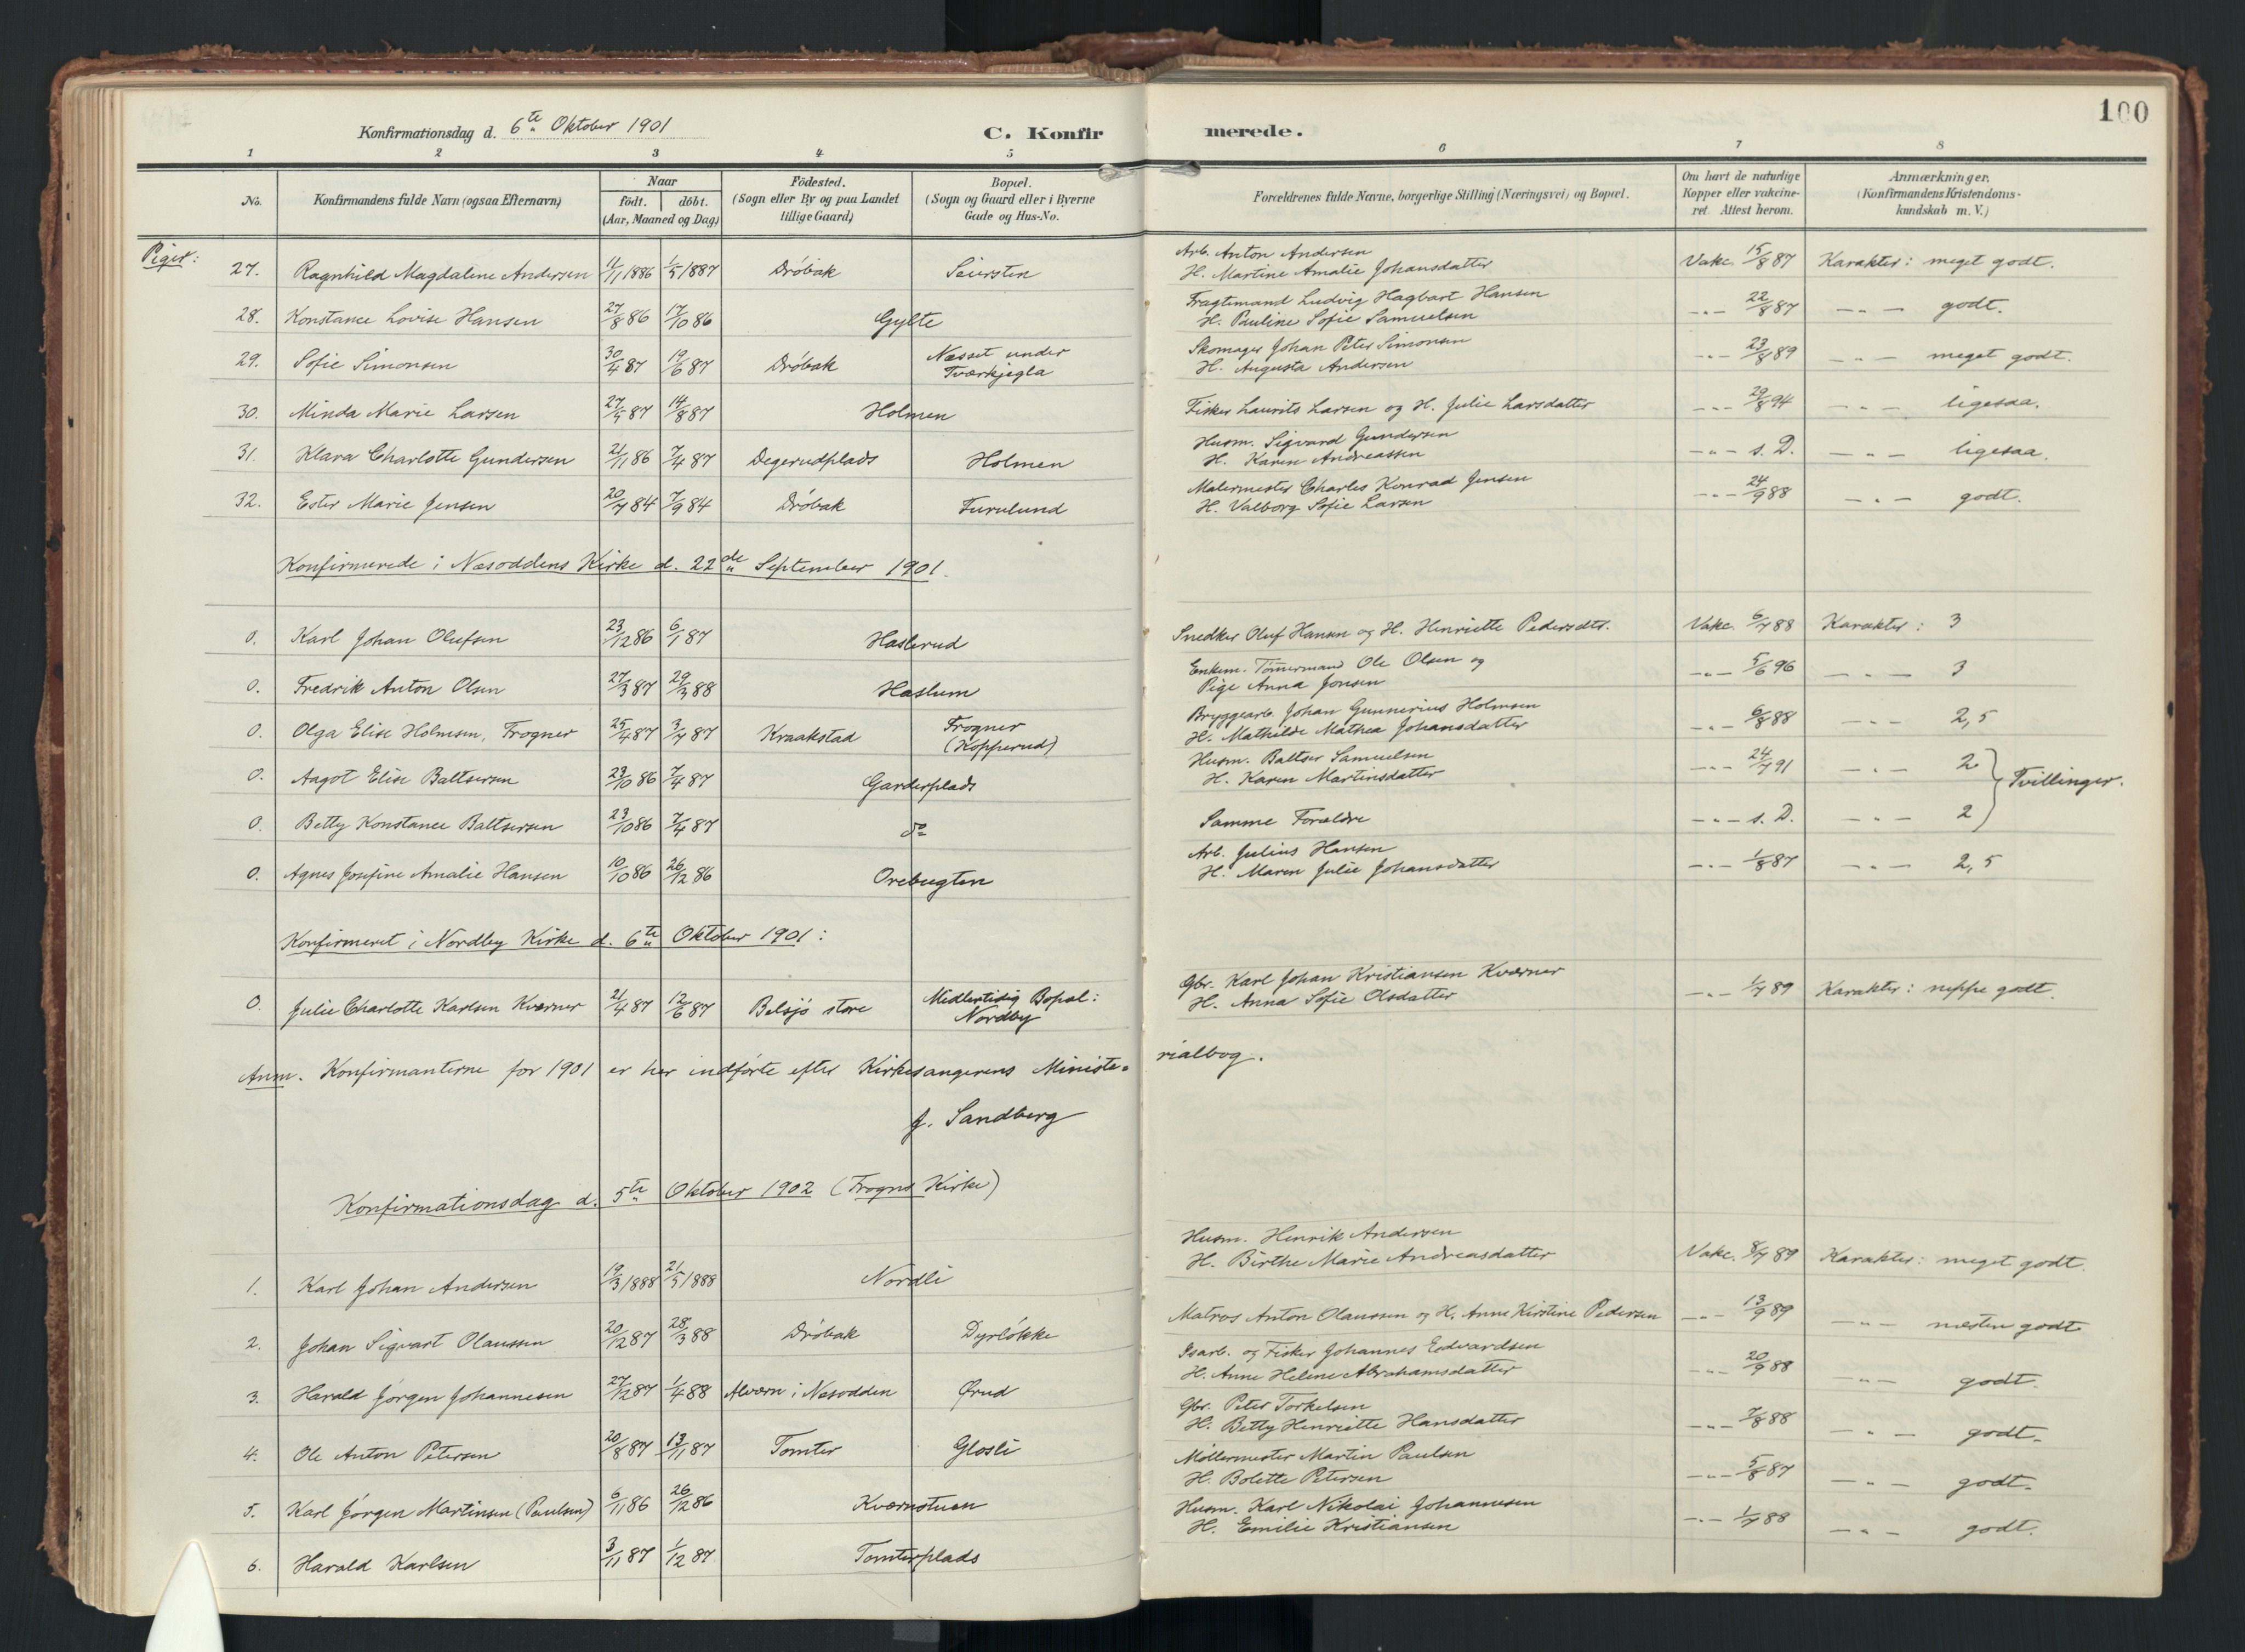 100
Konfirmationsdag d. 6te Oktober 1901 C. Konfirmerede.
1 2 3 4 5 6 7 8
No. Konfirmandens fulde Navn (ogsaa Efternavn) Naar födt. döbt. (Aar, Maaned og Dag) Födested. (Sogn eller By og paa Landet tillige Gaard) Bopæl. (Sogn og Gaard eller i Byerne Gade og Hus-No. Forældrenes fulde Navne, borgerlige Stilling (Næringsvei) og Bopæl. Om havt de naturlige Kopper eller vakcineret. Attest herom. Anmærkninger. (Konfirmandens Kristendomskundskab m. V.)
Piger:
27. Ragnhild Magdalene Andersen 11/11 1886 1/5 1887 Dröbak Seiersten Arb. Anton Andersen H. Martine Amalie Johansdatter Vakc. 15/8 87 Karakter: meget godt.
28. Konstance Lovise Hansen 27/8 86 17/10 86 Gylte Fragtemand Ludvig Hagbart Hansen H. Pauline Sofie Samuelsen -"- 22/8 87 -"- godt.
29. Sofie Simonsen 30/4 87 19/6 87 Dröbak Næsset under Tværkjegla Skomager Johan Peter Simonsen H. Augusta Andersen -"- 23/8 89 -"- meget godt.
30. Minda Marie Larsen 27/5 87 14/8 87 Holmen Fisker Laurits Larsen og H. Julie Larsdatter -"- 29/8 94 -"- ligesaa.
31. Klara Charlotte Gundersen 21/11 86 7/4 87 Degerudplads Holmen Husm. Sigvard Gundersen H. Karen Andreassen -"- s. D. -"- ligesaa.
32. Ester Marie Jensen 20/7 84 7/9 84 Dröbak Furulund Malermester Charles Konrad Jensen H. Valborg Sofie Larsen -"- 24/9 88 -"- godt.
Konfirmerede i Næsoddens Kirke d. 22de September 1901.
0. Karl Johan Olufsen 23/12 86 6/1 87 Haslerud Snedker Oluf Hansen og H. Henriette Pedersdtr. Vakc. 6/7 88 Karakter: 3
0. Fredrik Anton Olsen 27/3 87 29/3 88 Haslum Enkem. Tömermand Ole Olsen og Pige Anna Jonsen -"- 5/6 96 -"- 3
0. Olga Elise Holmsen, Frogner 25/4 87 3/7 87 Kraakstad Frogner (Kopperud) Bryggearb. Johan Gunnerius Holmsen H. Mathilde Mathea Johansdatter -"- 6/8 88 -"- 2,5
0. Aagot Elise Baltsersen 23/10 86 7/4 87 Garderplads Husm. Baltser Samuelsen H. Karen Martinsdatter -"- 24/7 91 -"- 2 } Tvillinger.
0. Betty Konstance Baltsersen 23/10 86 7/4 87 do Samme Forældre -"- s. D. -"- 2
0. Agnes Josefine Amalie Hansen 10/10 86 26/12 86 Orebugten Arb. Julius Hansen H. Maren Julie Johansdatter -"- 1/8 87 -"- 2,5
Konfirmeret i Nordby Kirke d. 6te Oktober 1901:
0. Julie Charlotte Karlsen Kværner 21/4 87 12/6 87 Belsjö store Midlertidig Bopæl: Nordby Gbr. Karl Johan Kristiansen Kværner H. Anna Sofie Olsdatter -"- 1/7 89 Karakter: neppe godt.
Anm. Konfirmanterne for 1901 er her indförte efter Kirkesangerens Ministerialbog.
J. Sandberg
Konfirmationsdag d. 5te Oktober 1902 (Frogns Kirke)
1. Karl Johan Andersen 19/3 1888 21/5 1888 Nordli Husm. Henrik Andersen H. Birthe Marie Andreasdatter Vakc. 8/7 89 Karakter: meget godt.
2. Johan Sigvart Olaussen 20/12 87 28/3 88 Dröbak Dyrlökke Matros Anton Olaussen og H. Anne Kirstine Pedersen -"- 13/9 89 -"- næsten godt
3. Harald Jørgen Johannesen 27/12 87 1/4 88 Alværn i Næsodden Ørud Isarb. og Fisker Johannes Edvardsen H. Anne Helene Abrahamsdatter -"- 20/9 88 -"- godt.
4. Ole Anton Petersen 20/8 87 13/11 87 Tomter Glosli Gbr. Peter Torkelsen H. Betty Henriette Hansdatter -"- 7/8 88 -"- godt.
5. Karl Jörgen Martinsen (Paulsen) 6/11 86 26/12 86 Kværnstuen Möllermester Martin Paulsen H. Bolette Petersen -"- 5/8 87 -"- godt.
6. Harald Karlsen 3/11 87 1/12 87 Tomterplads Husm. Karl Nikolai Johannesen H. Emilie Kristiansen -"- 1/7 88 -"- godt.